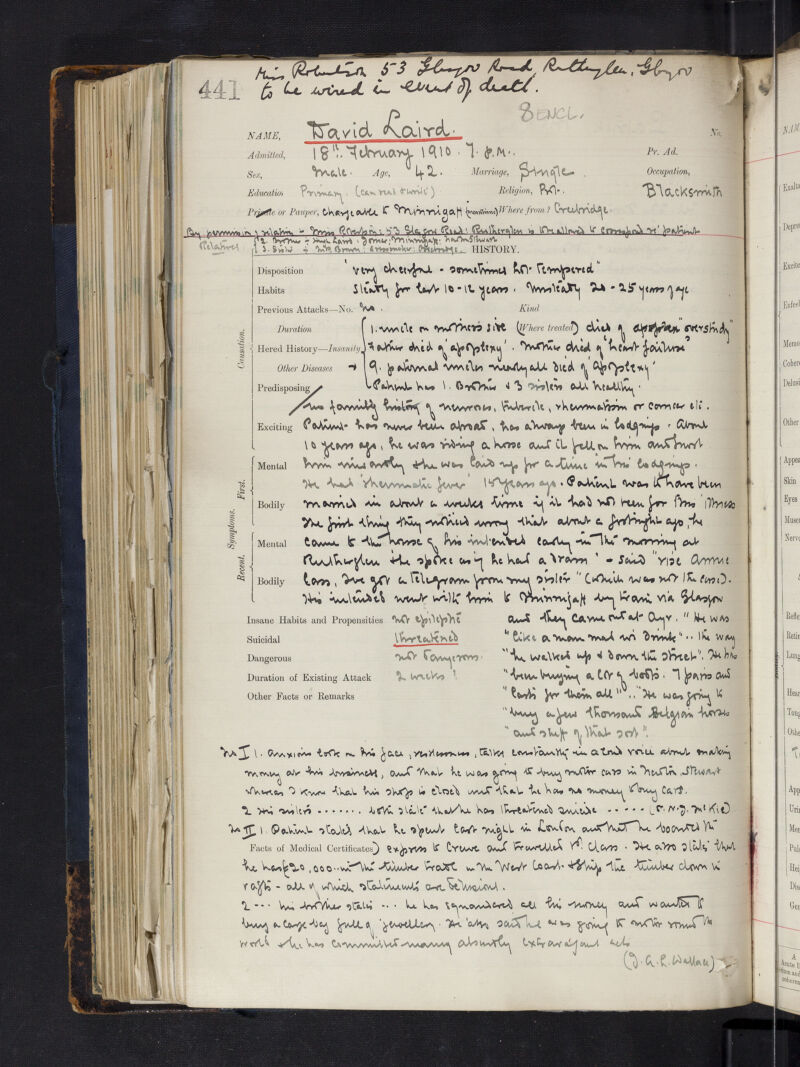 Miss Robertson 53 Glasgow Road, Rutherglen, Glasgow
441 to be wired in event of death.
8 ENCL.
NAME, David Laird. No.
Admitted, 18th February 1910. 7. P.M. Pr. Ad.
Sex, Male. Age, 42. Marriage, Single. Occupation,
Education Primary. (can read & write) Religion, Prot. Blacksmith
Private or Pauper, chargeable to Minnigaff Where from? Creebridge.
By permission of relatives - Miss Robertson: 53 Glasgow Road: Rutherglen is to be allowed to correspond re patient
Relatives
HISTORY.
Disposition "very cheerful - sometimes hot-tempered"
Habits Steady for last 10-12 years. Unsteady 20-25 years of age
Previous Attacks—No. No. Kind
Duration 1. uncle on mother's side (Where treated) died of apoplexy "overstudy"
Hered History—Insanity Father died of 'apoplexy'. Mother died of 'heart failure'
Other Diseases → 9. paternal uncles nearly all died of 'Apoplexy'
Predisposing Patient has 1. Brother & 3 sisters all healthy.
No family history of neuroses, tubercle, rheumatism or cancer etc.
Causation.
Exciting Patient has never been abroad, has always been in lodgings. About
10 years ago, he was riding a horse and it fell on him and hurt
Mental him internally & he was laid up for a time in his lodgings.
First. He had 'rheumatic fever' 14 years ago. Patient was to have been
Bodily married in about a weeks time if it had not been for this illness
Symptoms. The first thing they noticed wrong that about a fortnight ago he
Mental came to the house of his intended early in the morning at
Recent. Rutherglen & he spoke as if he had a dram' - said "rise Annie
Bodily lass, I've got a telegram from my sister" (which was not the case).
His intended went with him to Minnigaff by train via Glasgow
Insane Habits and Propensities not epileptic and they came out at Ayr. "He was
Suicidal threatened "like a man mad wi' drink".. the way
Dangerous not dangerous. "he walked up & down the street". He has
Duration of Existing Attack 2 weeks? "been buying a lot of boots. 7 pairs and
Other Facts or Remarks "lasts for them all".. "He was going to
"buy a few thousand Belgian horses
"and stuff of that sort".
I 1. Anxious look on his face, restlessness, talks constantly in a loud voice about making
money at his business, and that he was going to buy motor cars in Newton Stewart
whereas I know that his shop is closed and that he has no money to buy cars.
2 His sisters ....... both state that he has threatened suicide -----
II 1. Patient states that he spent last night in London and that he boarded the
Facts of Medical Certificates) express to Crewe and travelled 1st class. He also states that
he has £20,000 in the timber trade in the West Coast & ship the timber down in
rafts - all of which statements are delusions.
2 --- his brother states ... he has squandered all his money and wanted to
buy a large bag full of jewellery. He also said he was going to motor round the
world & he has committed many absurdly extravagant acts
(J. A. L. Wallace)